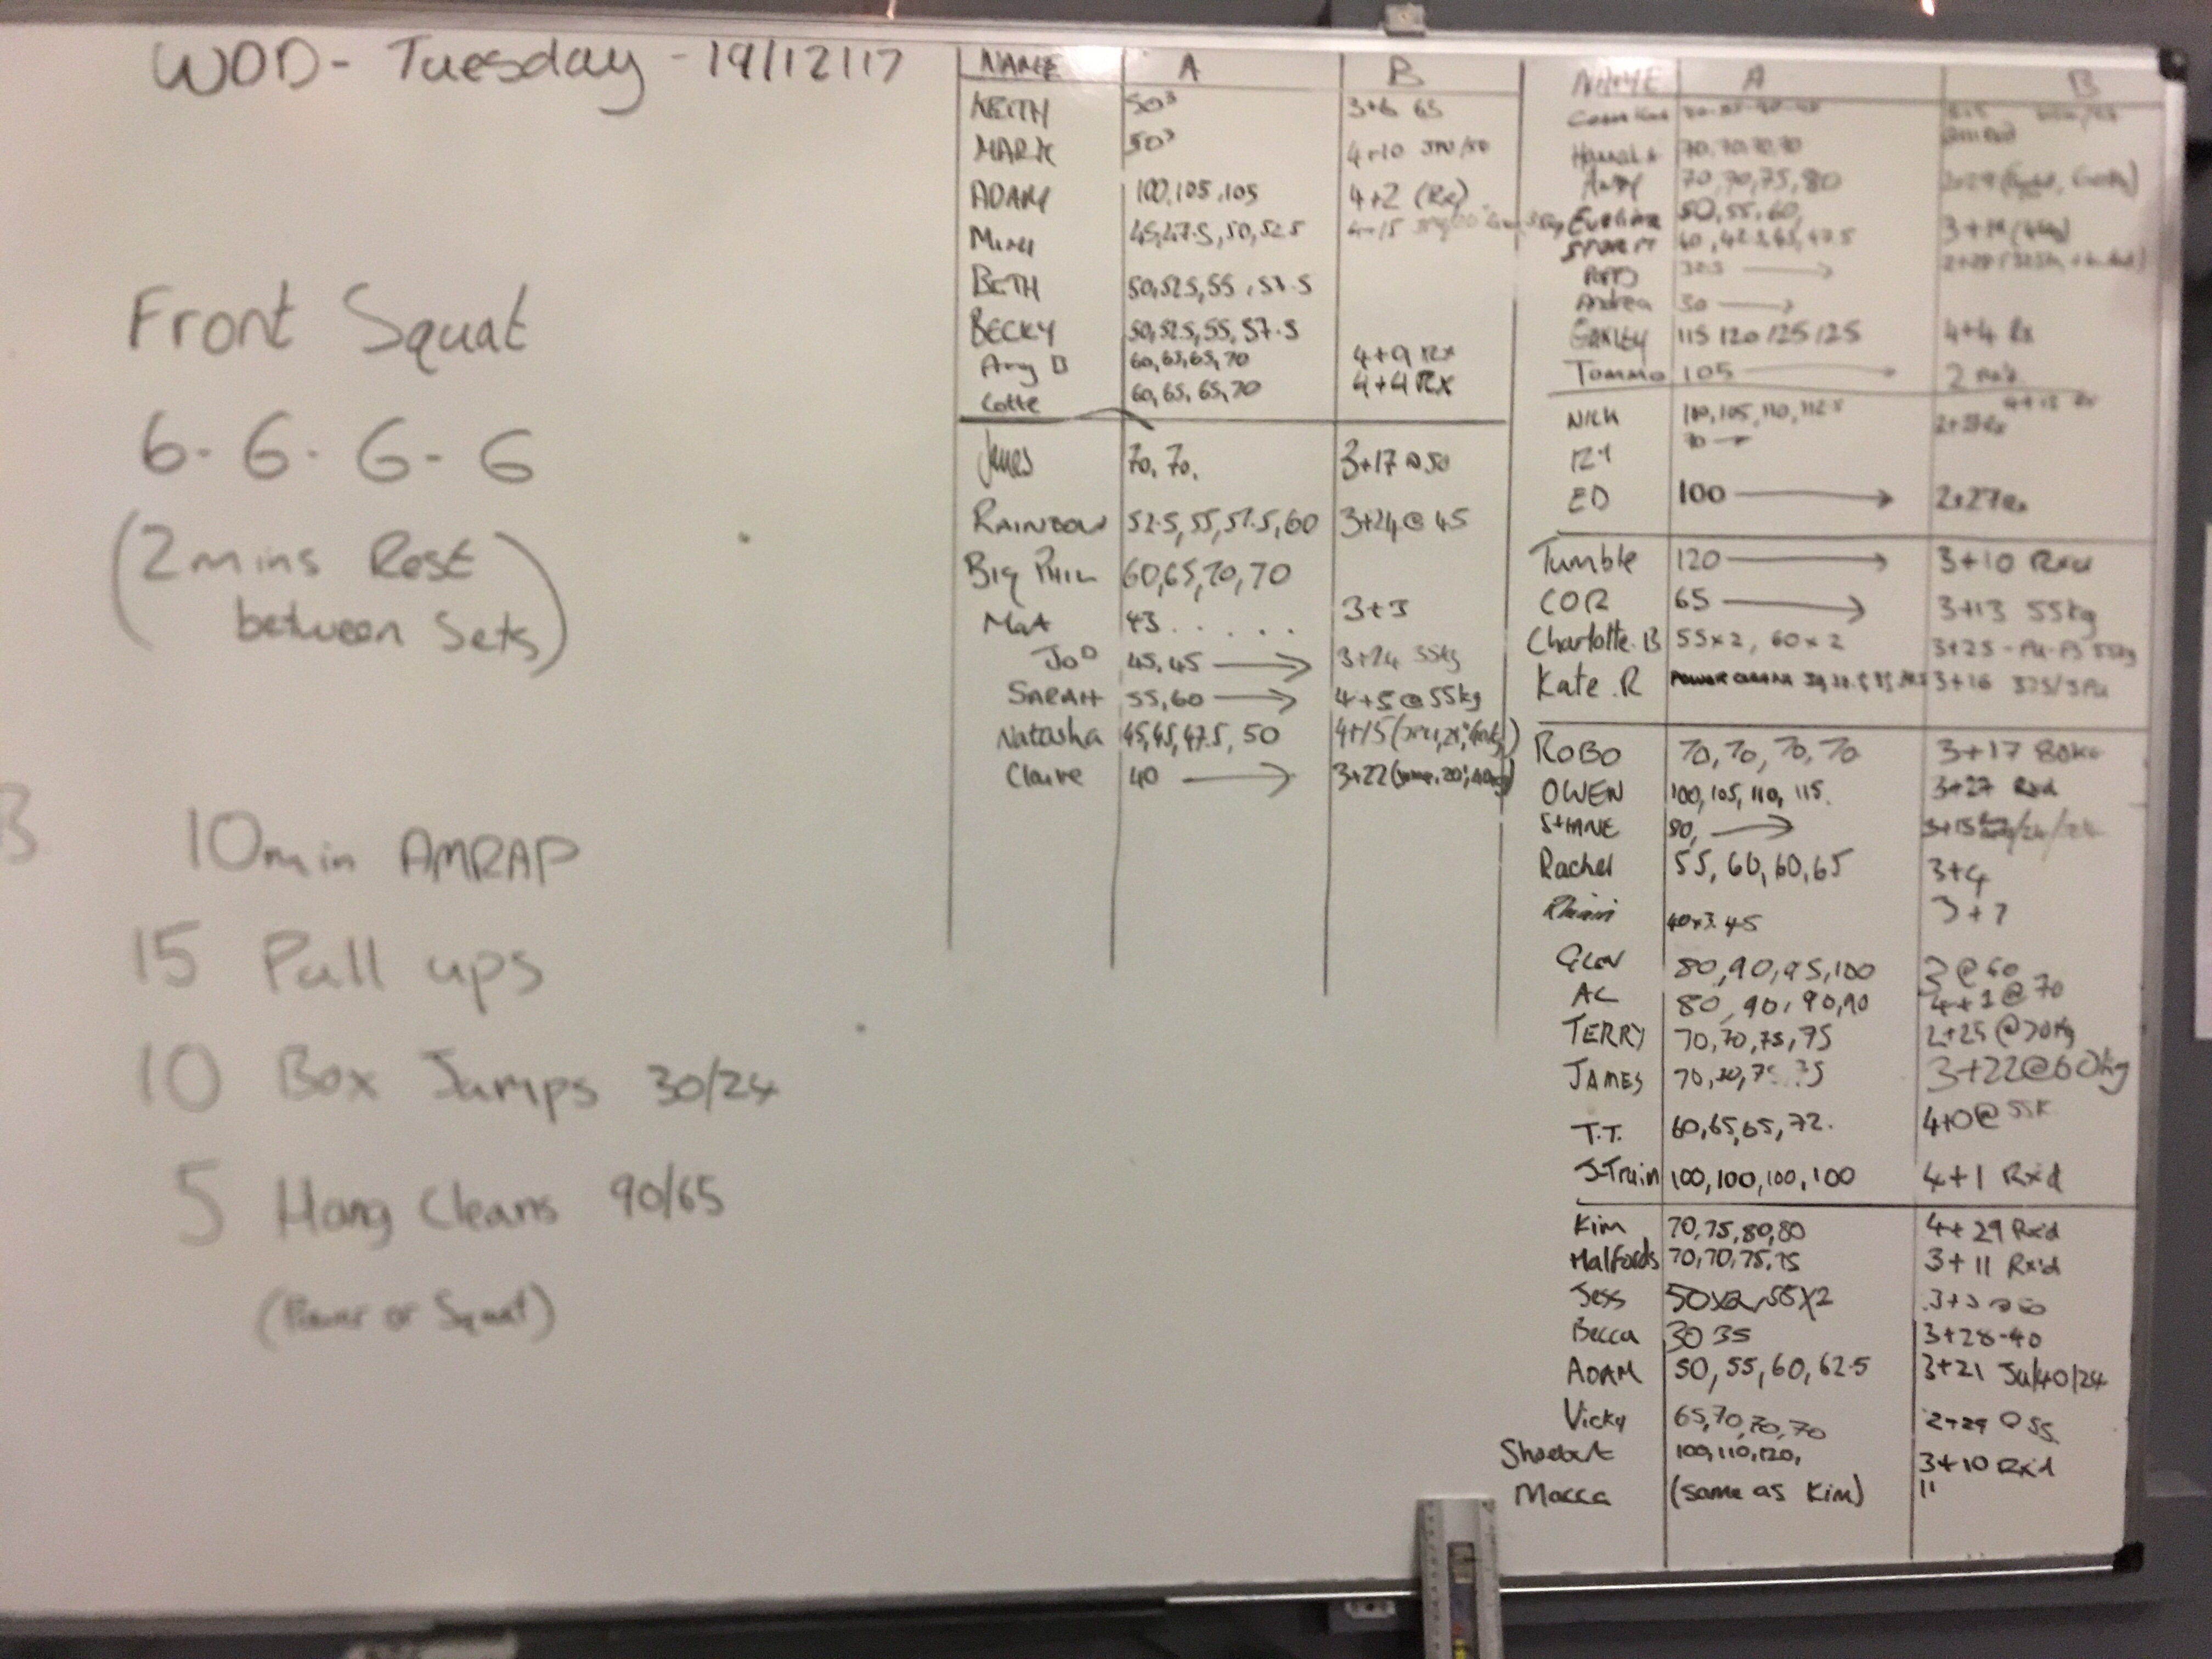 WOD - Tuesday - 19/12/17
Front Squat
6 - 6 - 6 - 6
(2 mins Rest
between Sets)
B
10min AMRAP
15 Pull ups
10 Box Jumps 30/24
5 Hang Cleans 90/65
(Power or Squat)
NAME A B
KEITH 50³ 3+6 65
MARK 50³ 4+10
ADAM 100,105,105 4+2 (Rx)
45,47.5,50,52.5 4+15
BETH 50,52.5,55,57.5
BECKY 50,52.5,55,57.5
Amy B 60,65,65,70 4+9 Rx
Lotte 60,65,65,70 4+4 Rx
James 70, 70, 3+17 @ 50
RAINBOW 52.5,55,57.5,60 3+24 @ 45
BIG PHIL 60,65,70,70
Mat 43 . . . . . 3+3
JoD 45,45 → 3+24 55kg
SARAH 55,60 → 4+5 @ 55kg
Natasha 45,45,47.5, 50 4+15
Claire 40 → 3+22
NAME A B
70,70,70,70
70,70,75,80
Evelina 50,55,60,
30.5 →
Andrea 30 →
115 120 125 125 4+4 Rx
Tommo 105 → 2
NICK 100,105,110,112.5
70 →
ED 100 → 2+27Rx
Tumble 120 → 3+10
COR 65 → 3+13 55kg
Charlotte.B 55x2, 60x2 3+25 - 55kg
Kate.R POWER 3+16
ROBO 70, 70, 70, 70 3+17 80kg
OWEN 100,105,110, 115. 3+27 Rxd
SHANE 80, →
Rachel 55, 60, 60, 65 3+4
40x3. 45 3+7
GLEN 80,90,95,100 3 @ 60
AL 80, 90, 90,90 4+1 @ 70
TERRY 70,70,75,75 2+25 @70kg
JAMES 70,70,75 75 3+22@60kg
T.T. 60,65,65,72. 4+0@ 55K
J-Train 100,100,100,100 4+1 Rx'd
Kim 70,75,80,80 4+29 Rx'd
Halfords 70,70,75,75 3+11 Rx'd
Jess 50x2, 55x2
Becca 30 35 3+28-40
ADAM 50, 55, 60, 62.5 3+21 Ju/40/24
Vicky 65,70,70,70 2+29 @ 55
100,110,120, 3+10 Rx'd
Macca (same as Kim) "